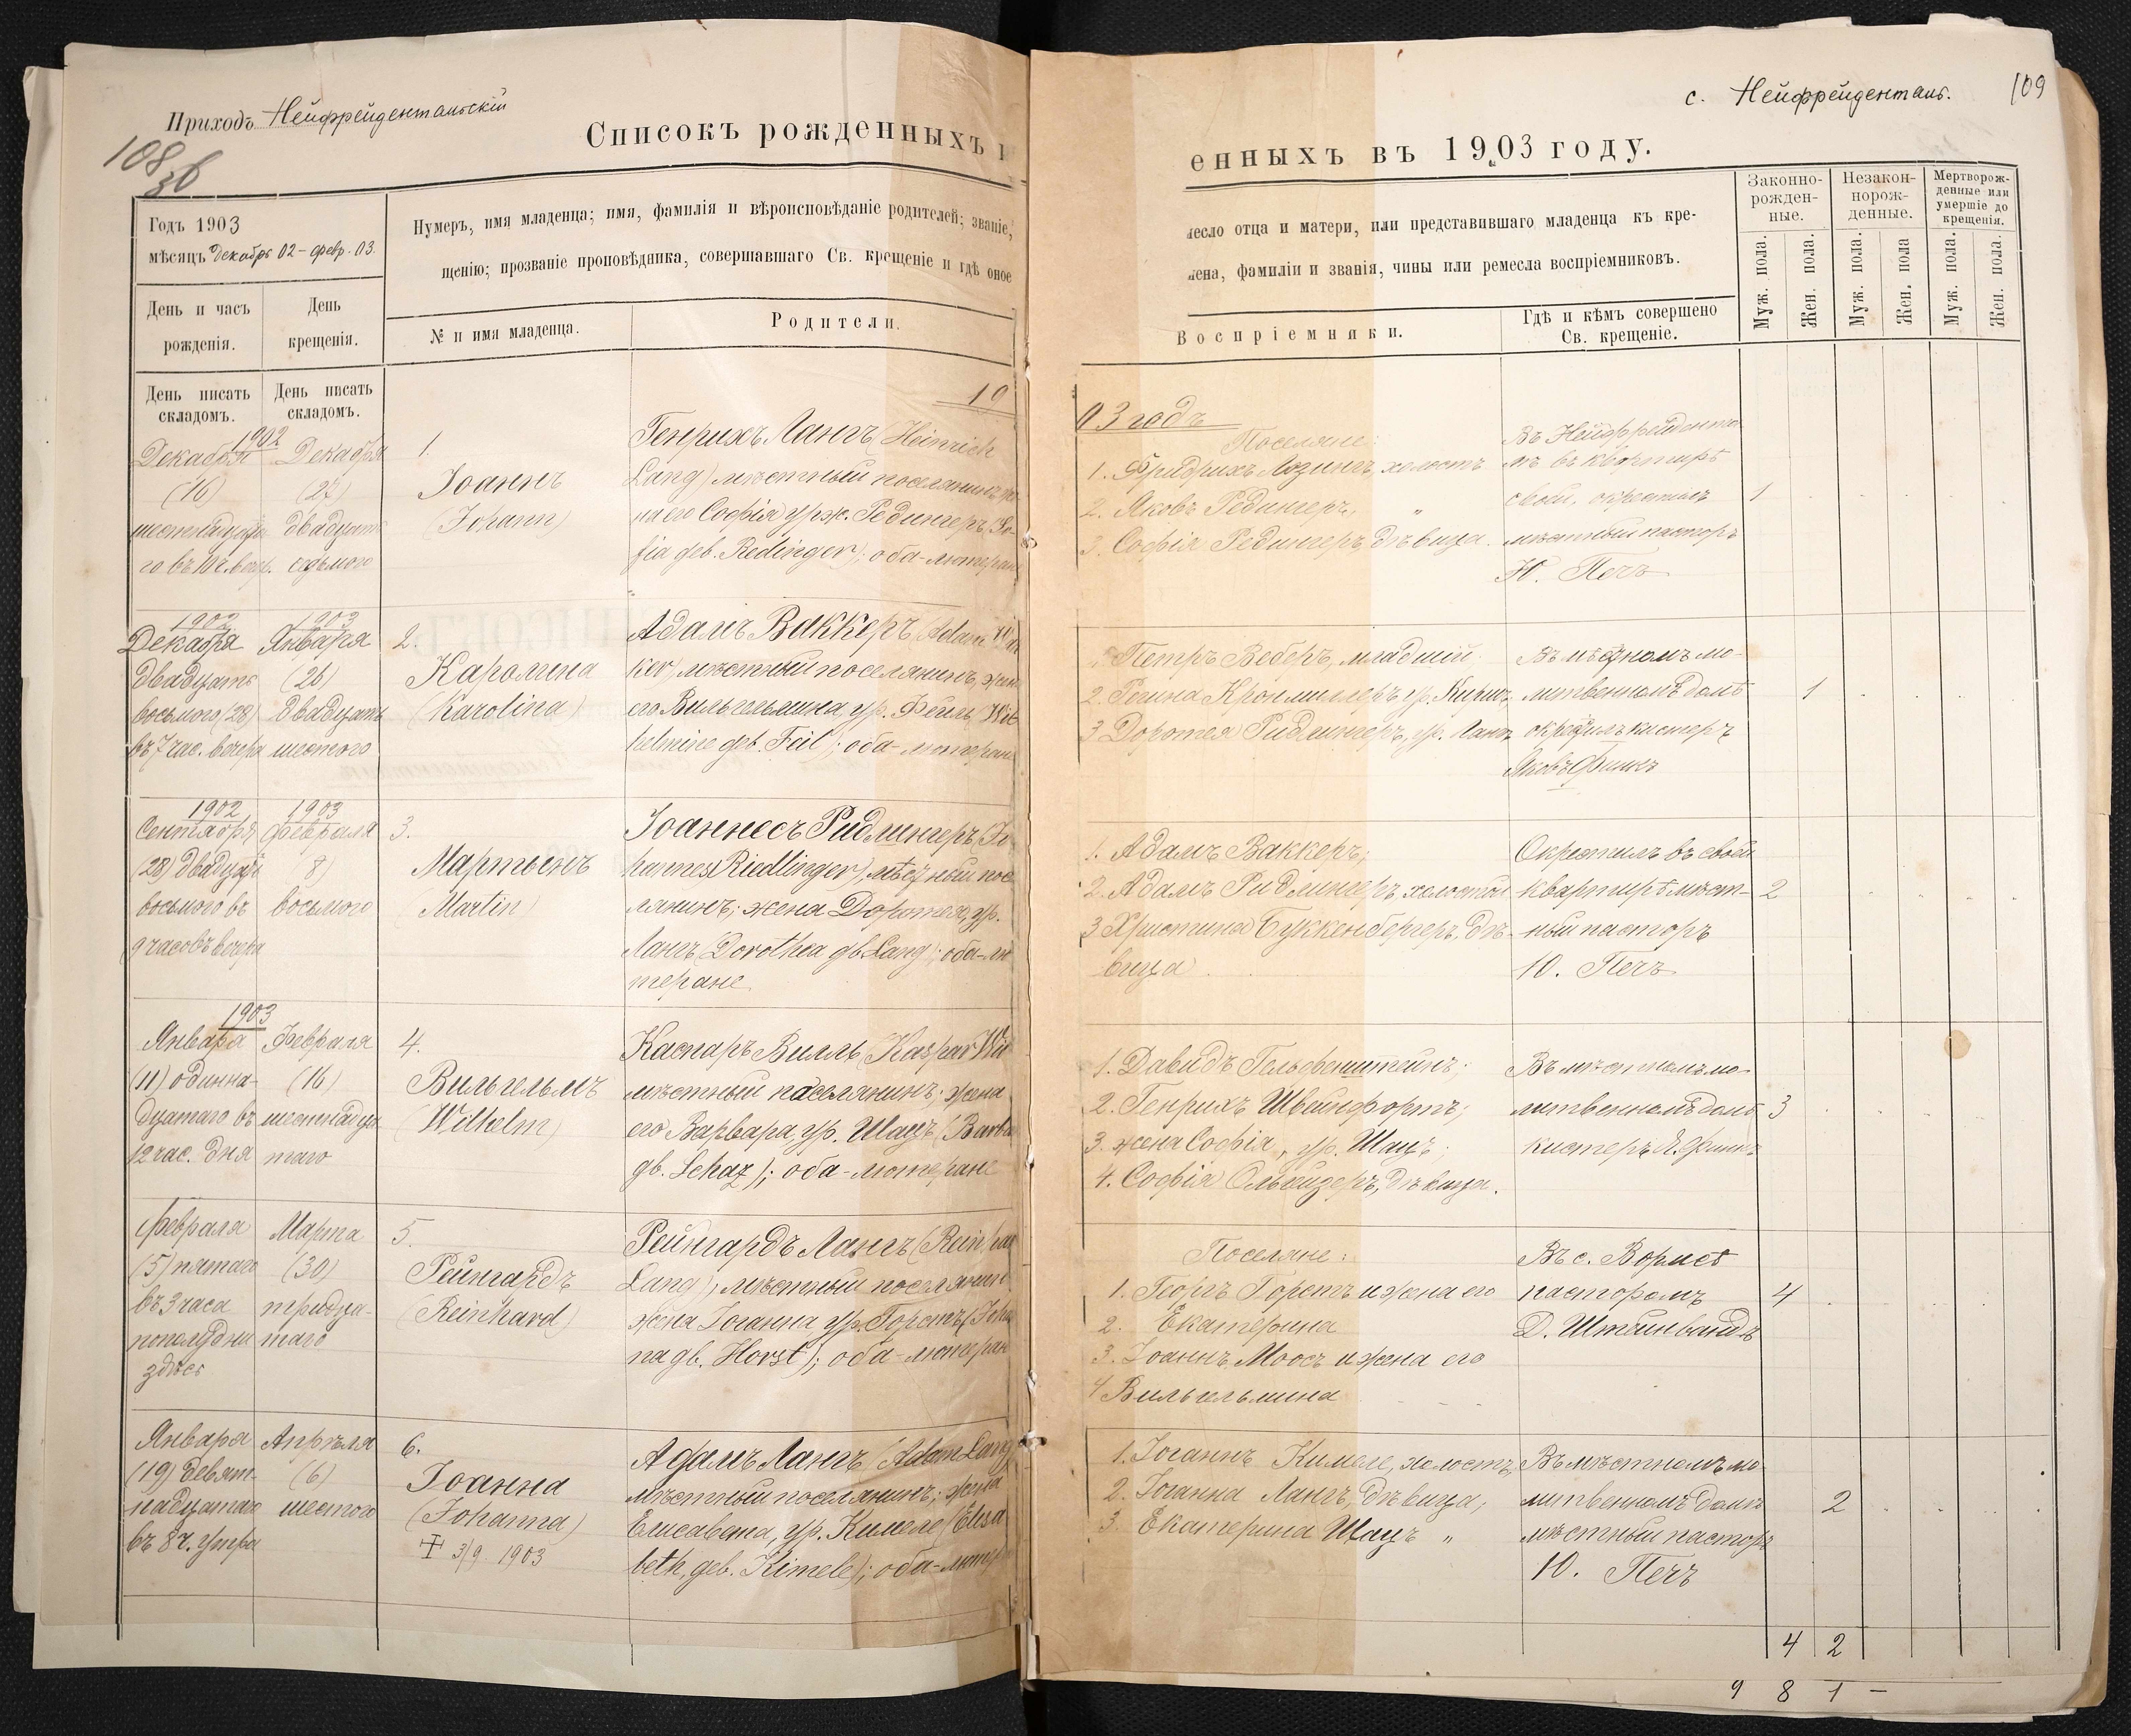 Приходъ Нейфрейдентальскій
108 об
Списокъ рожденныхъ
Годъ 1903
мѣсяцъ Декабрь 02 – февр. 03.
Нумеръ, имя младенца; имя, фамилія и вѣроисповѣданіе родителей; званіе,
щенію; прозваніе проповѣдника, совершавшаго Св. крещеніе и гдѣ оное
День и часъ рожденія.
День крещенія.
№ и имя младенца.
Родители.
День писать складомъ.
День писать складомъ.
19
1902
Декабря
(16)
шестнадцата
го въ 10 ч. веч.
Декабря
(27)
двадцать
седьмого
1.
Іоаннъ
(Johann)
Генрихъ Лангъ (Heinrich
Lang) мѣстный поселянинъ, же
на его Софія урж. Редингеръ (So-
fia geb. Redinger); оба-лютеране
1902
Декабря
двадцать
восьмого (28)
въ 7 час. вечера
1903
Января
(26)
двадцать
шестого
2.
Каролина
(Karolina)
Адамъ Ваккеръ (Adam Wak
ker) мѣстный поселянинъ, жена
его Вильгельмина, ур. Фейль (Wil
helmine geb. Feil); оба-лютеране
1902
Сентября
(28) двадцать
восьмого въ
9 часовъ вечера
1903
Февраля
8)
восьмого
3.
Мартынъ
(Martin)
Іоаннесъ Ридлингеръ (Jo
hannes Riedlinger) мѣстный посе
лянинъ; жена Доротея, ур.
Лангъ (Dorothea gb. Lang); оба-лю
теране
1903
Января
(11) одинна-
дцатаго въ
12 час. дня
Февраля
(16)
шестнадца
таго
4.
Вильгельмъ
(Wilhelm)
Каспаръ Вилль (Kaspar Wil
мѣстный поселянинъ; жена
его Варвара, ур. Шацъ (Barba
gb. Schaz); оба-лютеране
Февраля
(5) пятаго
въ 3 часа
пополудни
здѣсь
Марта
(30)
тридца-
таго
5.
Рейнгардъ
(Reinhard)
Рейнгардъ Лангъ (Reinhar
Lang), мѣстный поселянин
жена Іоганна ур. Горстъ (Joha
na gb. Horst); оба-лютеран
Января
(19) девят-
надцатаго
въ 8 ч. утра
Апрѣля
(6)
шестого
6.
Іоанна
(Johanna)
3/9 1903
Адамъ Лангъ (Adam Lang
мѣстный поселянинъ; жена
Елисавета, ур. Кимеле (Elisa
beth, geb. Kimele); оба-лютер
с. Нейфрейденталь.
109
енныхъ въ 1903 году.
месло отца и матери, или представившаго младенца къ кре-
мена, фамиліи и званія, чины или ремесла воспріемниковъ.
Воспріемники.
Гдѣ и кѣмъ совершено
Св. крещеніе.
Законно-
рожден-
ные.
Незакон-
норож-
денные.
Мертворож-
денные или
умершіе до
крещенія.
Муж. пола.
Жен. пола.
Муж. пола.
Жен. пола
Муж. пола.
Жен. пола.
03 годъ
Поселяне:
1. Фридрихъ Лозингъ, холостъ
2. Яковъ Редингеръ, "
3. Софія Редингеръ, дѣвица.
Въ Нейфрейдента
лѣ въ квартирѣ
своей, окрестилъ
мѣстный пасторъ
Ю. Печъ
1
Петръ Веберъ, младшій
2. Регина Кронмиллеръ ур. Киршъ
3. Доротея Ридлингеръ, ур. Лангъ
Въ мѣстномъ мо-
литвенномъ домѣ
окрестилъ кистеръ
Яковъ Финкъ
1
1. Адамъ Ваккеръ;
2. Адамъ Ридлингеръ, холостой
3. Христина Буккенбергеръ, дѣ-
вица
Окрестилъ въ своей
квартирѣ мѣст-
ный пасторъ
Ю. Печъ
2
1. Давидъ Гельфенштейнъ;
2. Генрихъ Швейнфортъ;
3. жена Софія, ур. Шацъ;
4. Софія Ольгейзеръ, дѣвица.
Въ мѣстномъ мо-
литвенномъ домѣ
кистеръ Я. Финкъ
3
Поселяне:
1. Георгъ Горстъ и жена его
2. Екатерина
3. Іоаннъ Моосъ и жена его
4 Вильгельмина
Въ с. Вормсѣ
пасторомъ
Д. Штейнвандъ
4
1. Іоганнъ Кимеле, холостъ,
2. Іоганна Лангъ, дѣвица;
3. Екатерина Шацъ "
Въ мѣстномъ мо-
литвенномъ домѣ
мѣстный пасторъ
Ю. Печъ
2
4 2
9 8 1 –